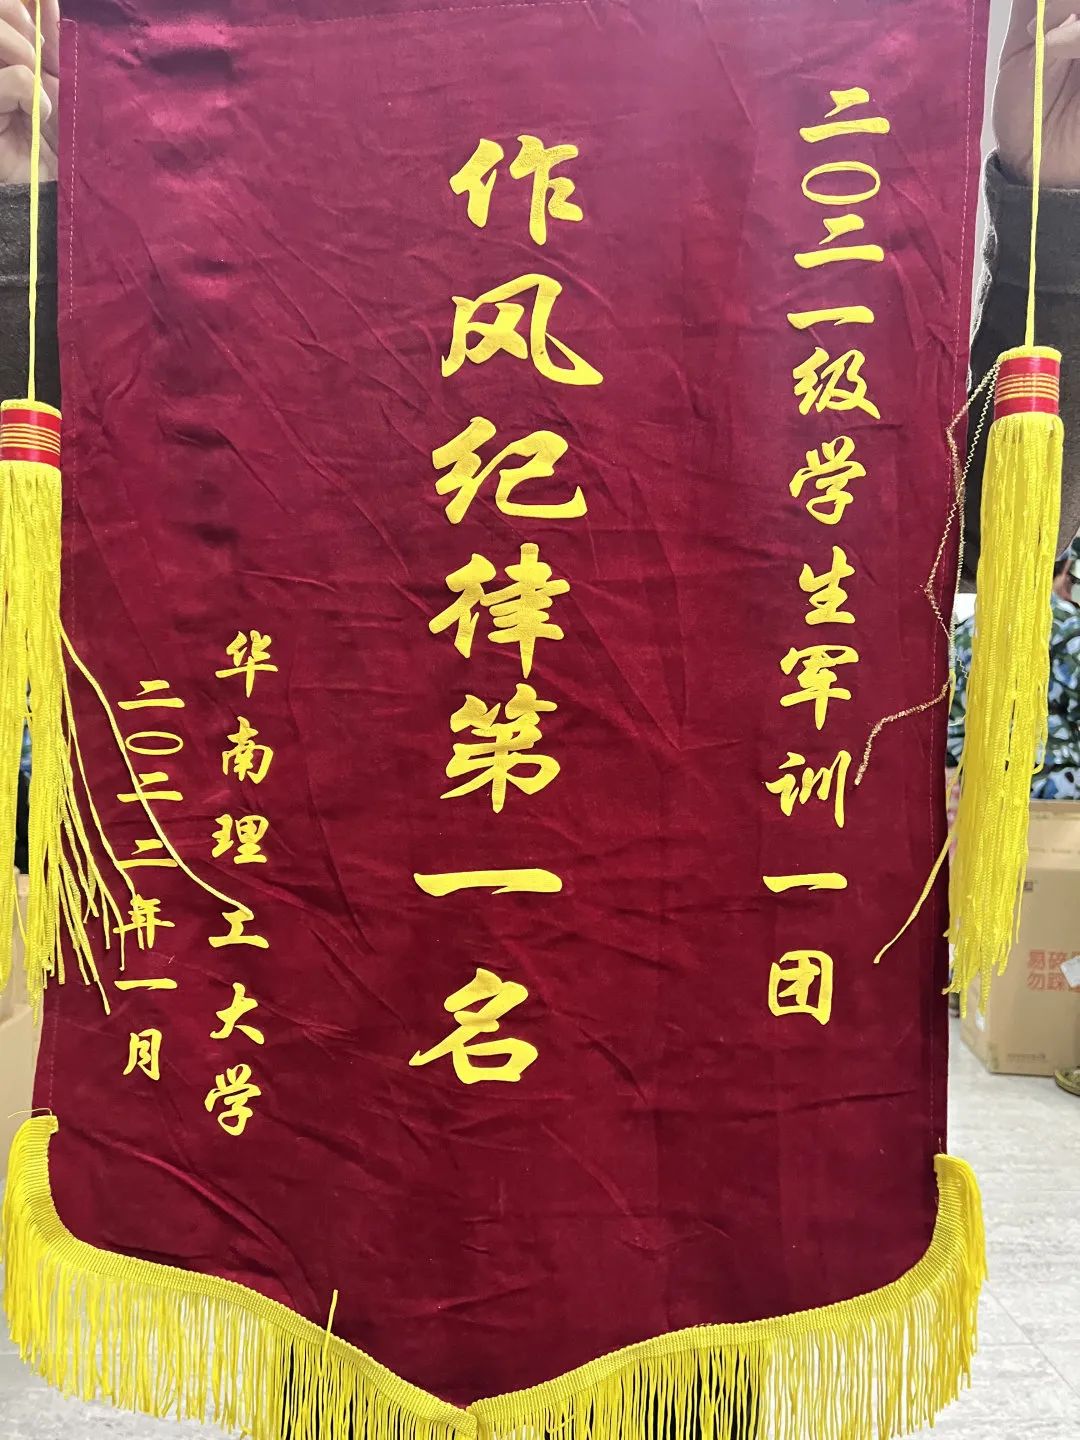 二〇二一级学生军训一团
作风纪律第一名
华南理工大学
二〇二二年一月
易碎
勿踩